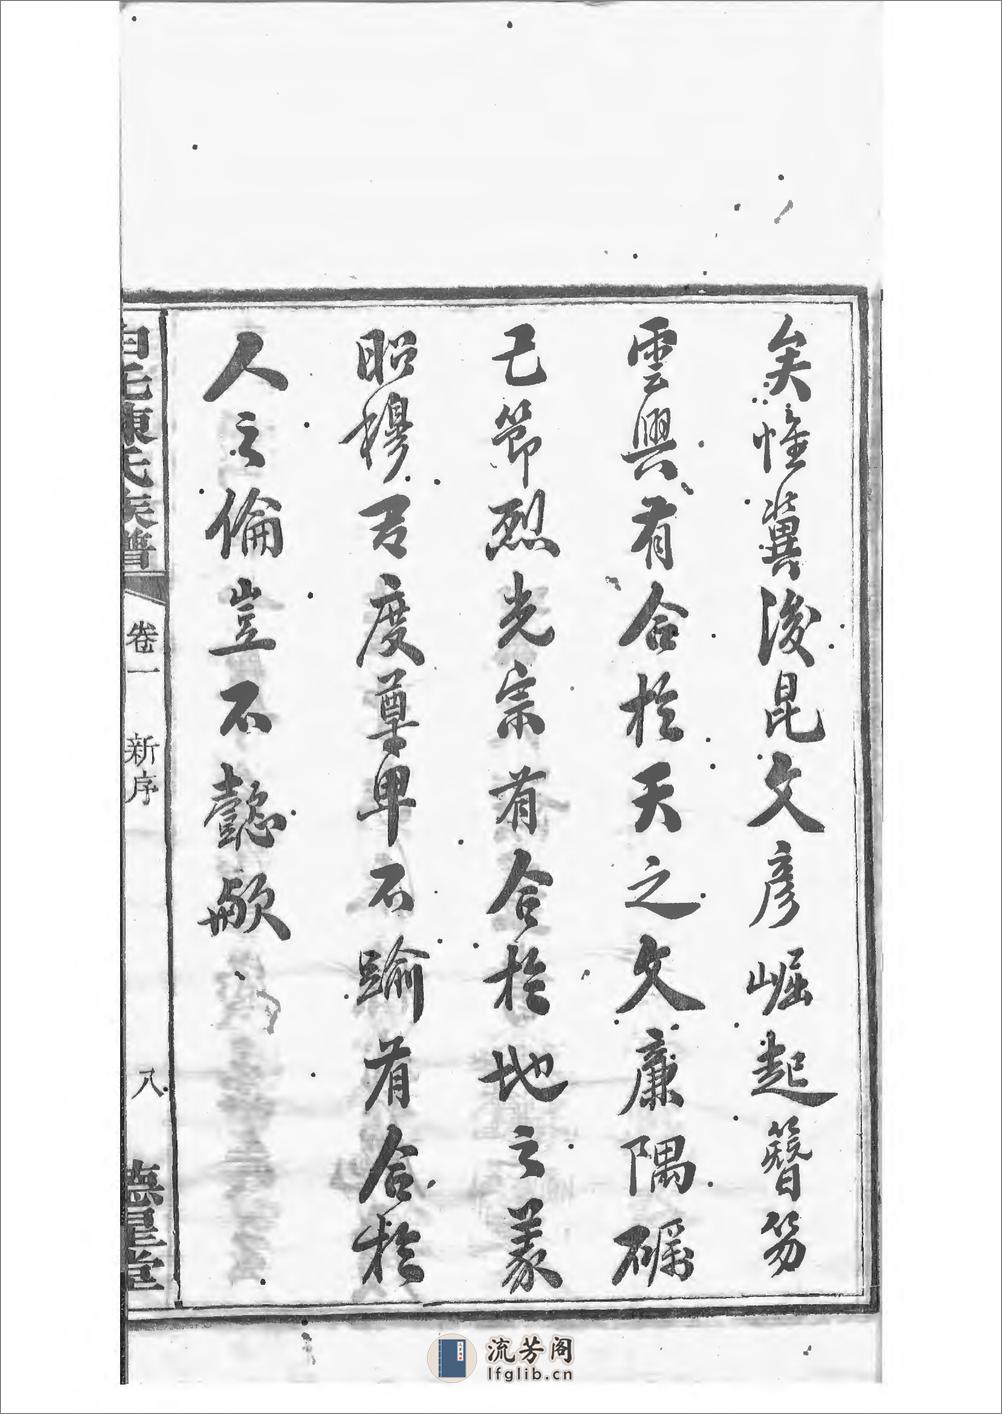 矣惟冀後昆文彥崛起簪笏
雲興有合於天之文廉隅礪
己節烈光宗有合於地之義
昭穆有度尊卑不踰有合於
人之倫豈不懿歟
陳氏族譜
卷一 新序
八
德星堂
流芳阁
lfglib.cn